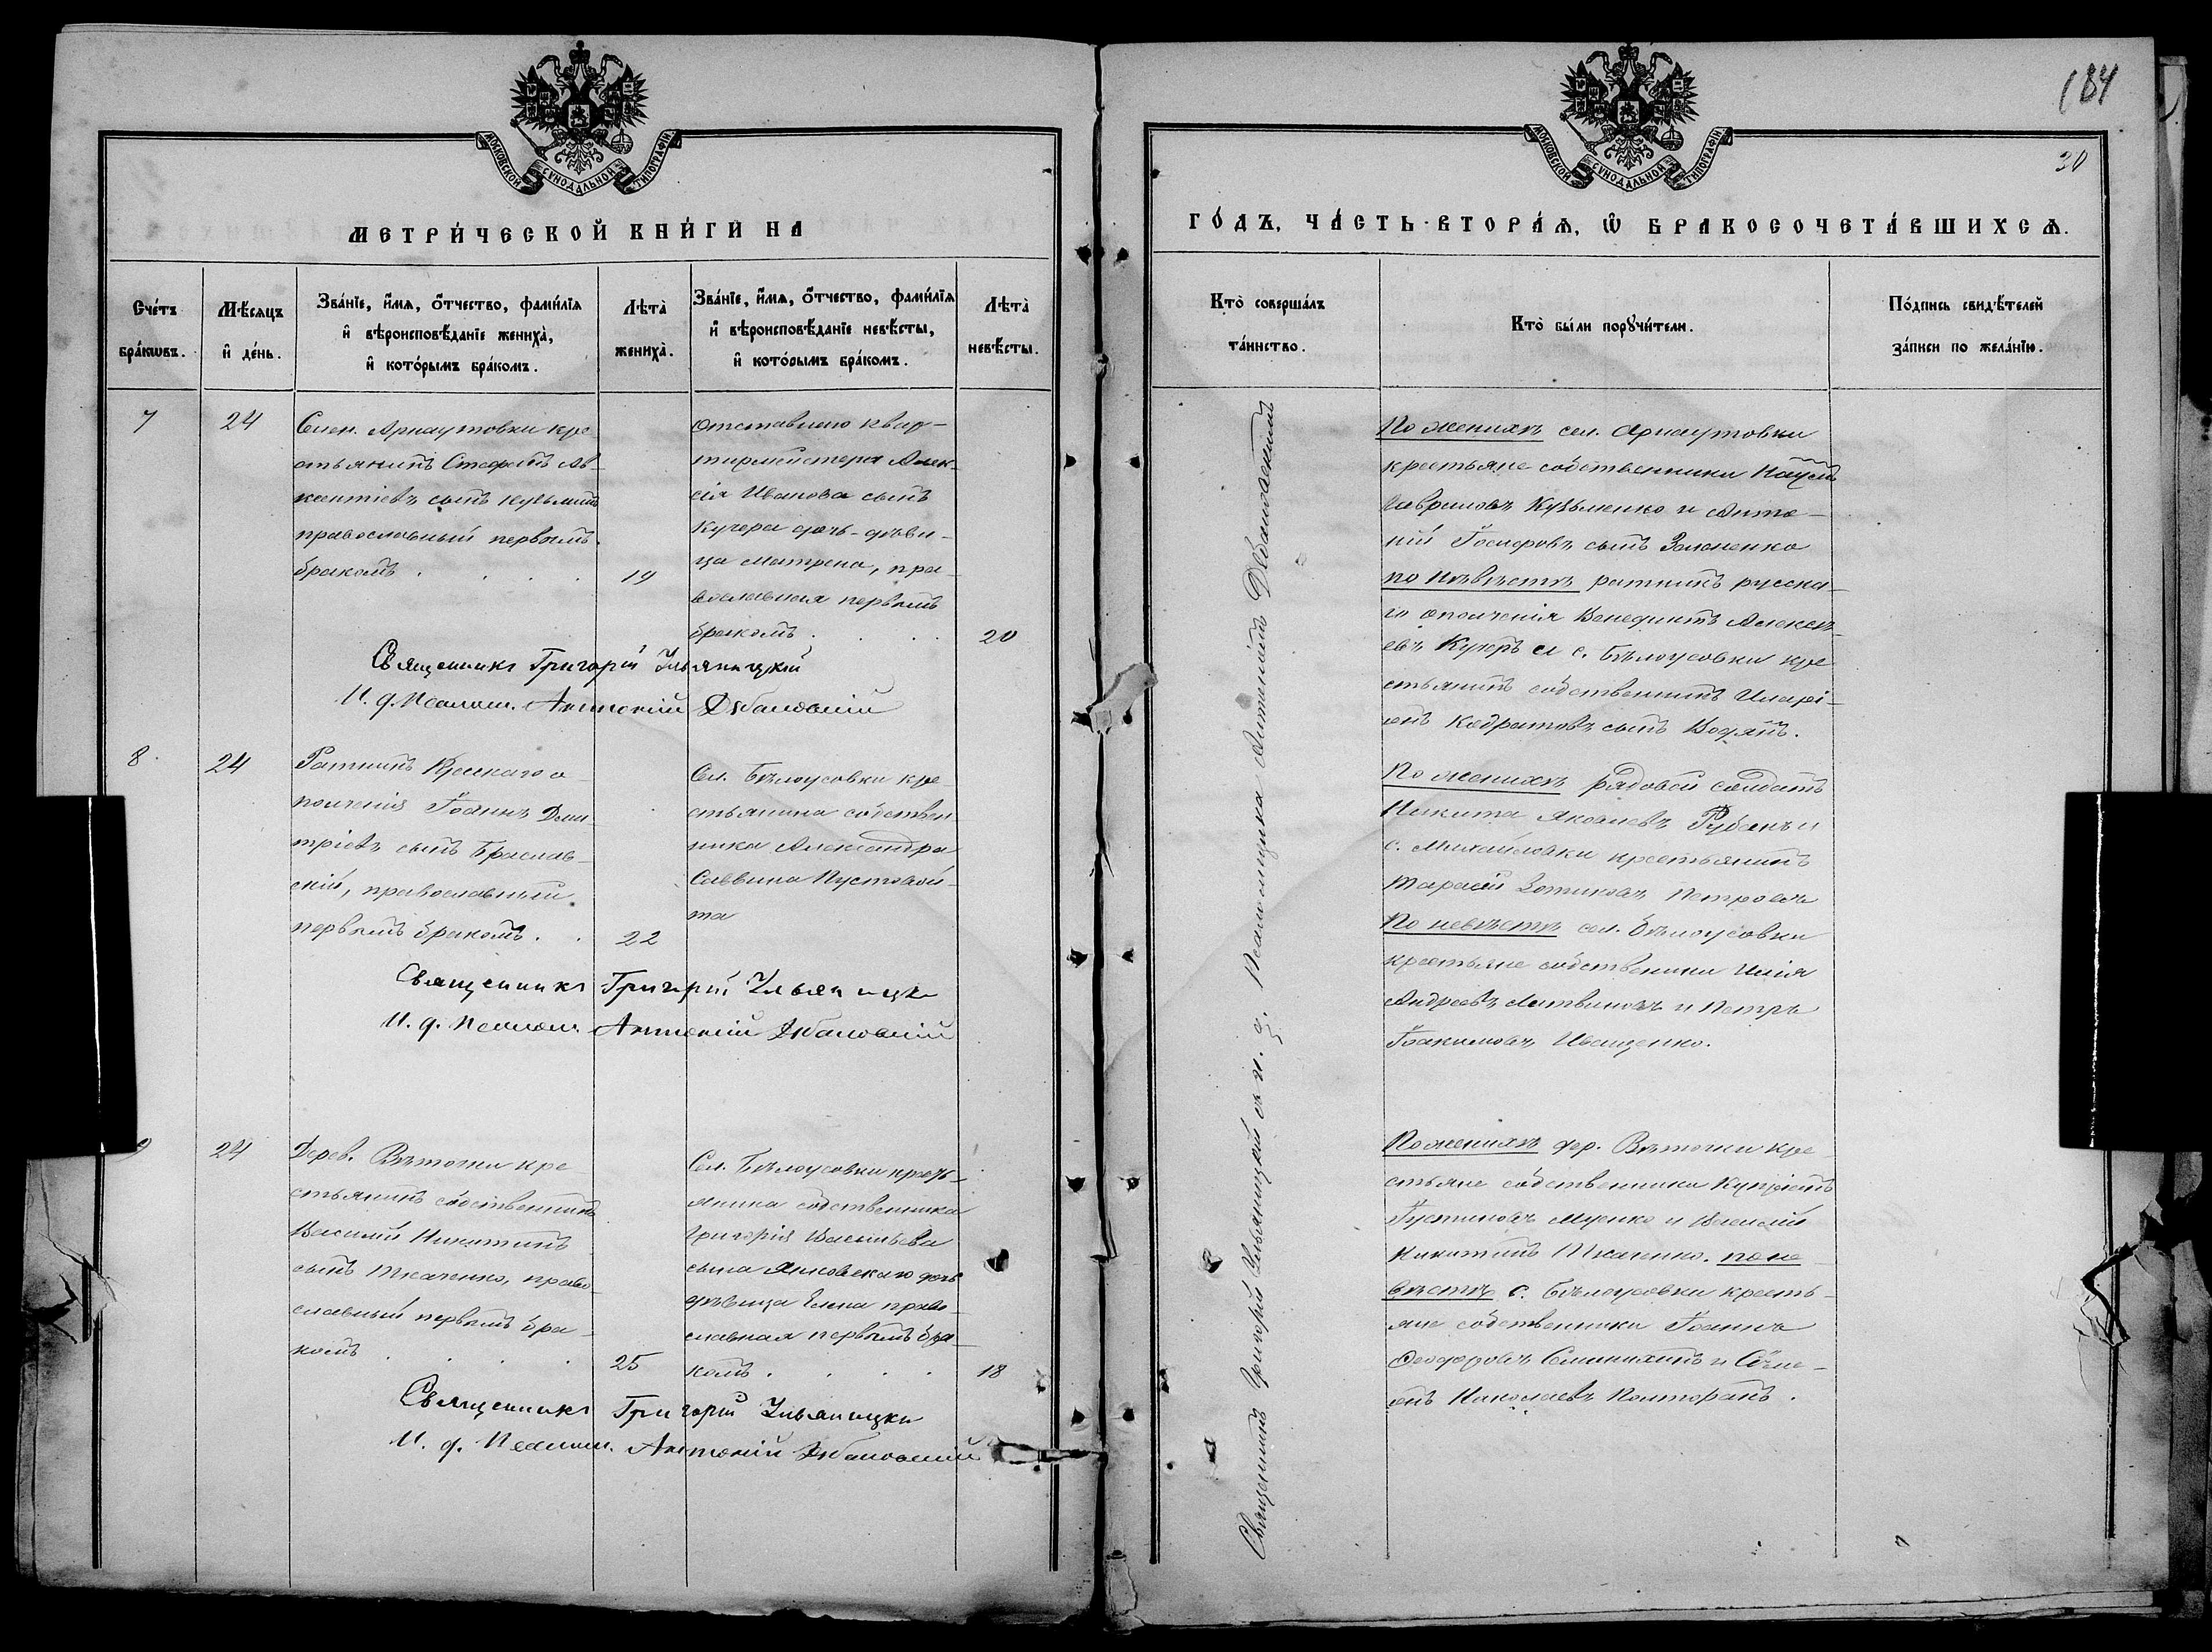 184
30
МОСКОВСКОЙ СУНОДАЛЬНОЙ ТИПОГРАФІИ
МЕТРИ́ЧЕСКОЙ КНИ́ГИ НА
Сче́тъ бра́кωвъ.
Мѣ́сяцъ и҆ де́нь.
Зва́нїе, и҆́мѧ, ѻ҆́тчество, фами́лїѧ
и҆ вѣроисповѣ́данїе жениха̀,
и҆ кото́рымъ бра́комъ.
Лѣта̀ жениха̀.
Зва́нїе, и҆́мѧ, ѻ҆́тчество, фами́лїѧ
и҆ вѣроисповѣ́данїе невѣ́сты,
и҆ кото́рымъ бра́комъ.
Лѣта̀ невѣ́сты.
7
24
Селен. Арнаутовки кре
стьянинъ Стефанъ Ав-
ксентіевъ сынъ Кузьминъ
православный первымъ
бракомъ . . . .
19
Отставного квар-
тирмейстера Алек-
сія Иванова сына
Кучера дочь-дѣви-
ца Матрена, пра-
вославная первымъ
бракомъ . . .
20
Священникъ Григорій Ильяницкій
И. д. Псалом. Антоній Дебановскій
8.
24
Ратникъ Русскаго о-
полченія Іоаннъ Дми-
тріевъ сынъ Браслав-
скій, православный
первымъ бракомъ. .
22
Сел. Бѣлоусовки кре-
стьянина собствен
ника Александра
Саввина Пустовой-
та
Священникъ Григорій Ильяницкі
И. д. Псалом. Антоній Дебановскій
9
24
Дерев. Вѣточки кре
стьянинъ собственникъ
Василій Никитинъ
сынъ Ткаченко, право
славный первымъ бра-
комъ . . . .
25
Сел. Бѣлоусовки кресть-
янина собственника
Григорія Васильева
сына Янковскаго дочь
дѣвица Елена право-
славная первымъ бра-
комъ . . . .
18
Священникъ Григорій Ильяницкі
И. д. Псалом. Антоній Дебановскій
МОСКОВСКОЙ СУНОДАЛЬНОЙ ТИПОГРАФІИ
ГО́ДЪ, ЧА́СТЬ ВТОРА́Ѧ, Ѽ БРАКОСОЧЕТА́ВШИХСѦ.
Кто̀ соверша́лъ та́инство.
Кто̀ бы́ли порꙋчи́тели.
По́дпись свидѣ́телей за́писи по жела́нїю.
Священникъ Григорій Ильяницкій съ и. д. Псаломщика Антоніемъ Дебановскимъ
По женихѣ сел. Арнаутовки
крестьяне собственники Наумъ
Гавриловъ Кузьменко и Анто-
ній Іосифовъ сынъ Залоненко
по невѣстѣ ратникъ русска-
го ополченія Венедиктъ Алексѣ-
евъ Кучеръ и с. Бѣлоусовки кре
стьянинъ собственникъ Иларі-
онъ Кодратовъ сынъ Водянъ.
По женихѣ рядовой солдатъ
Никита Яковлевъ Рубанъ и
с. Михайловки крестьянинъ
Тарасій Зотиковъ Петровъ
По невѣстѣ сел. Бѣлоусовки
крестьяне собственники Илія
Андреевъ Литвиновъ и Петръ
Іоакимовъ Иващенко.
По женихѣ дер. Вѣточки кре
стьяне собственники Купріянъ
Іустиновъ Мусенко и Василій
Никитинъ Ткаченко. по не
вѣстѣ с. Бѣлоусовки кресть-
яне собственники Іоаннъ
Феодоровъ Семинихинъ и Сѵме-
онъ Николаевъ Полторакъ.